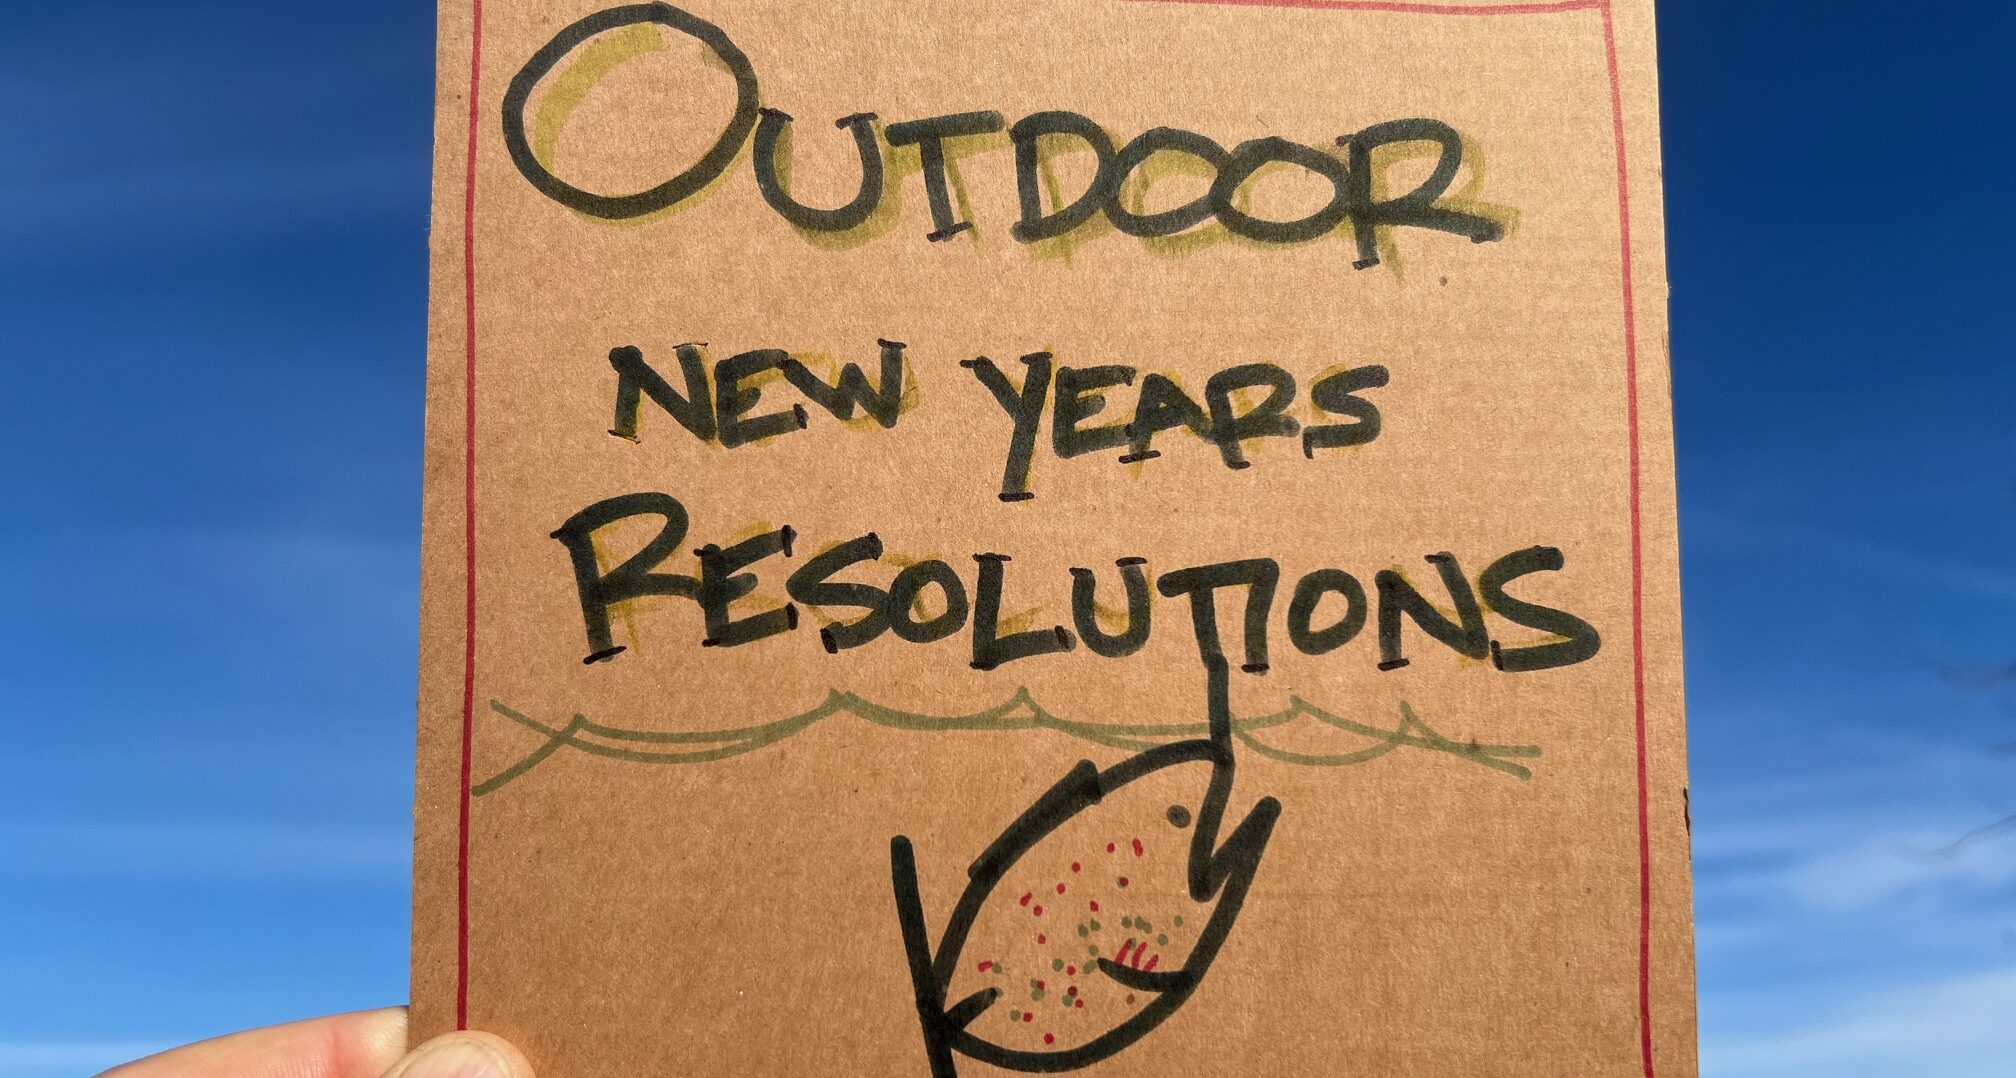 OUTDOOR
NEW YEARS
RESOLUTIONS